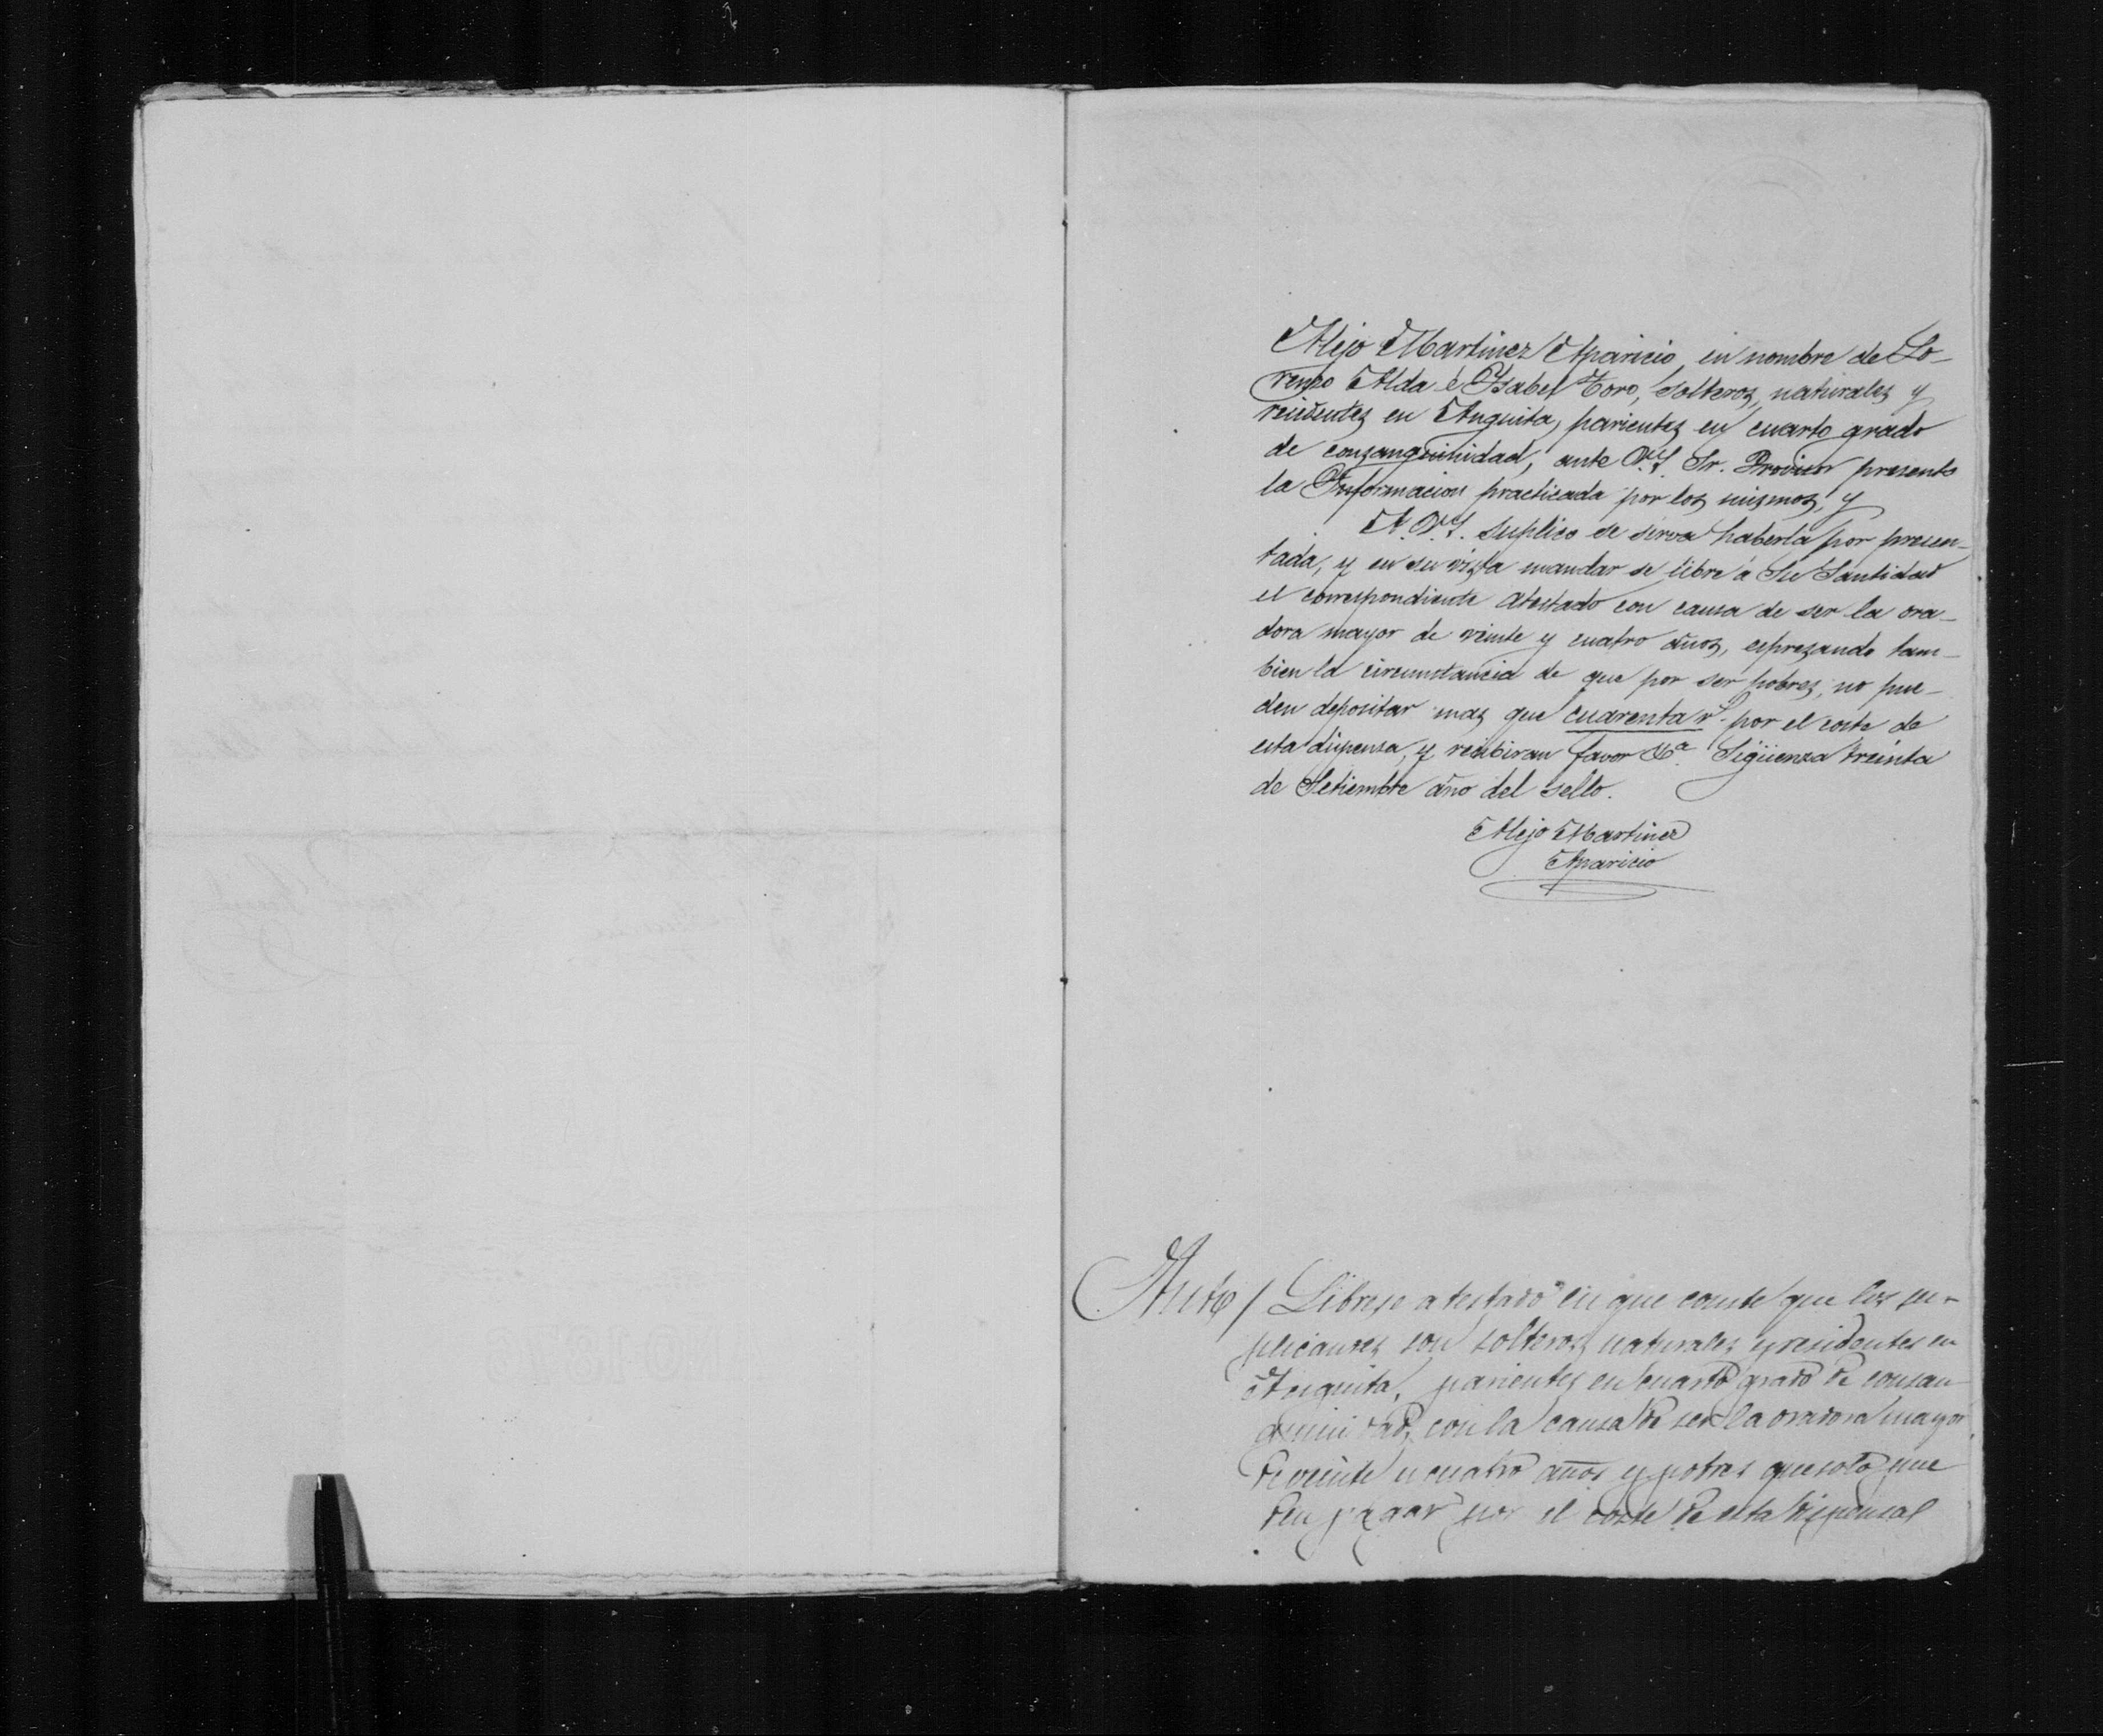 Alejo Martinez Aparicio, en nombre de Lo-
renzo Alda é Ysabel Toro, solteros, naturales y
residentes en Anguita, parientes en cuarto grado
de consanguinidad, ante V.S. Sr. Provisor presento
la Informacion practicada por los mismos, y
A V.S. suplico se sirva haberla por presen-
tada, y en su vista mandar se libre á Su Santidad
el correspondiente atestado con causa de ser la ora-
dora mayor de veinte y cuatro años, espresando tam-
bien la circunstancia de que por ser pobres, no pue-
den depositar mas que cuarenta rs. por el coste de
esta dispensa, y recibiran favor &a. Sigüenza treinta
de Setiembre año del sello.
Alejo Martinez
Aparicio
Auto / Librese atestado en que conste que los su-
plicantes son solteros, naturales y residentes en
Anguita, parientes en cuarto grado de consan
guinidad, con la causa de ser la oradora mayor
de veinte y cuatro años y pobres que solo pue
den pagar por el coste de esta dispensa